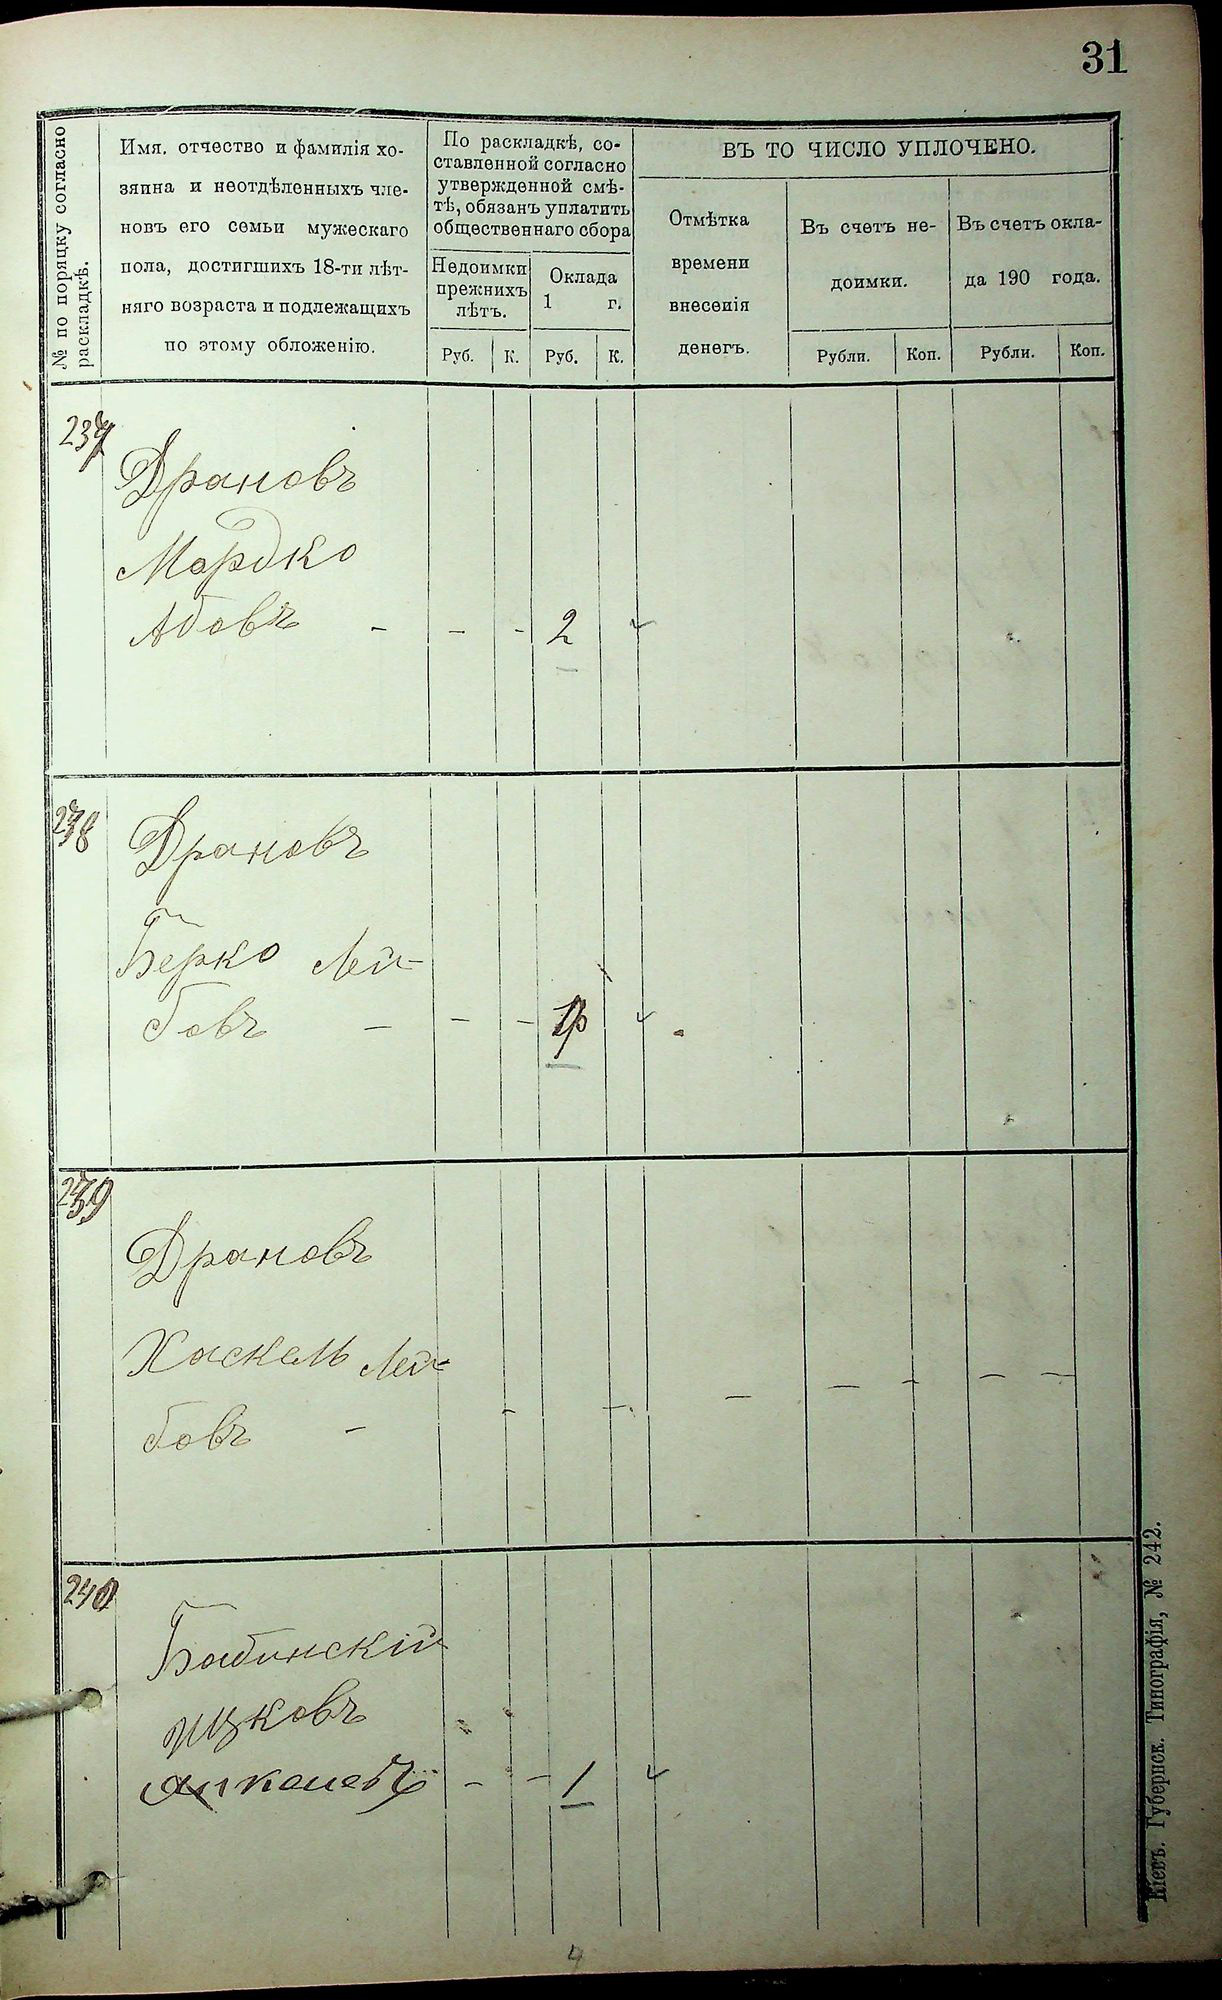 31
№ по поряцку согласно
раскладкѣ.
Имя, отчество и фамилія хо-
зяина и неотдѣленныхъ чле-
новъ его семьи мужескаго
пола, достигшихъ 18-ти лѣт-
няго возраста и подлежащихъ
по этому обложенію.
По раскладкѣ, со-
ставленной согласно
утвержденной смѣ-
тѣ, обязанъ уплатить
общественнаго сбора
Недоимки
прежнихъ
лѣтъ.
Оклада
1 г.
Руб. К. Руб. К.
ВЪ ТО ЧИСЛО УПЛОЧЕНО.
Отмѣтка
времени
внесенія
денегъ.
Въ счетъ не-
доимки.
Въ счетъ окла-
да 190 года.
Рубли. Коп. Рубли. Коп.
237
Драновъ
Мордко
Абовъ - - - 2
238
Драновъ
Берко Лей-
бовъ - - - 1
239
Драновъ
Хаскель Лей-
бовъ - - - - - - - -
240
Бабинскій
Ицковъ
Янкелевъ - - 1
4
Кіевъ. Губернск. Типографія, № 242.